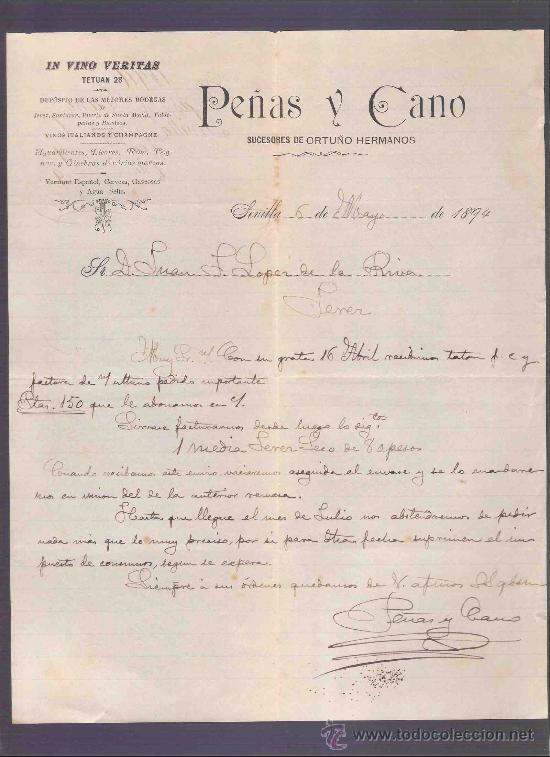 IN VINO VERITAS
TETUAN 28
DEPÓSITO DE LAS MEJORES BODEGAS
DE
Jerez, Sanlúcar, Puerto de Santa María, Valde-
peñas y
VINOS ITALIANOS Y CHAMPAGNE
Aguardientes, Licores, Rom, Cog-
nac y Ginebras de varias marcas.
Vermout Español, Cerveza, Gaseosas
y Agua Seltz.
PEÑAS Y CANO
SUCESORES DE ORTUÑO HERMANOS
Sevilla 6 de Mayo de 1894
Sr. D. Juan F. Lopez de la Riva
Jerez
Muy Sr. nr/ Con su grata 16 Abril recibimos talon f. c y
factura de n/ ultimo pedido importante
Ptas. 150 que le abonamos en c/.
Sirvase facturarnos desde luego lo sigte
1 media Jerez Seco de 80 pesos
Cuando recibamos este envio vaciaremos aseguida el envase y se lo mandare-
mos en union del de la anterior remesa.
Hasta que llegue el mes de Julio nos abstendremos de pedir
nada mas que lo muy preciso, por si para dicha fecha suprimen el im-
puesto de consumos, segun se espera.
Siempre a sus órdenes quedamos de V. afmos
Peñas y Cano
todocoleccion
www.todocoleccion.net